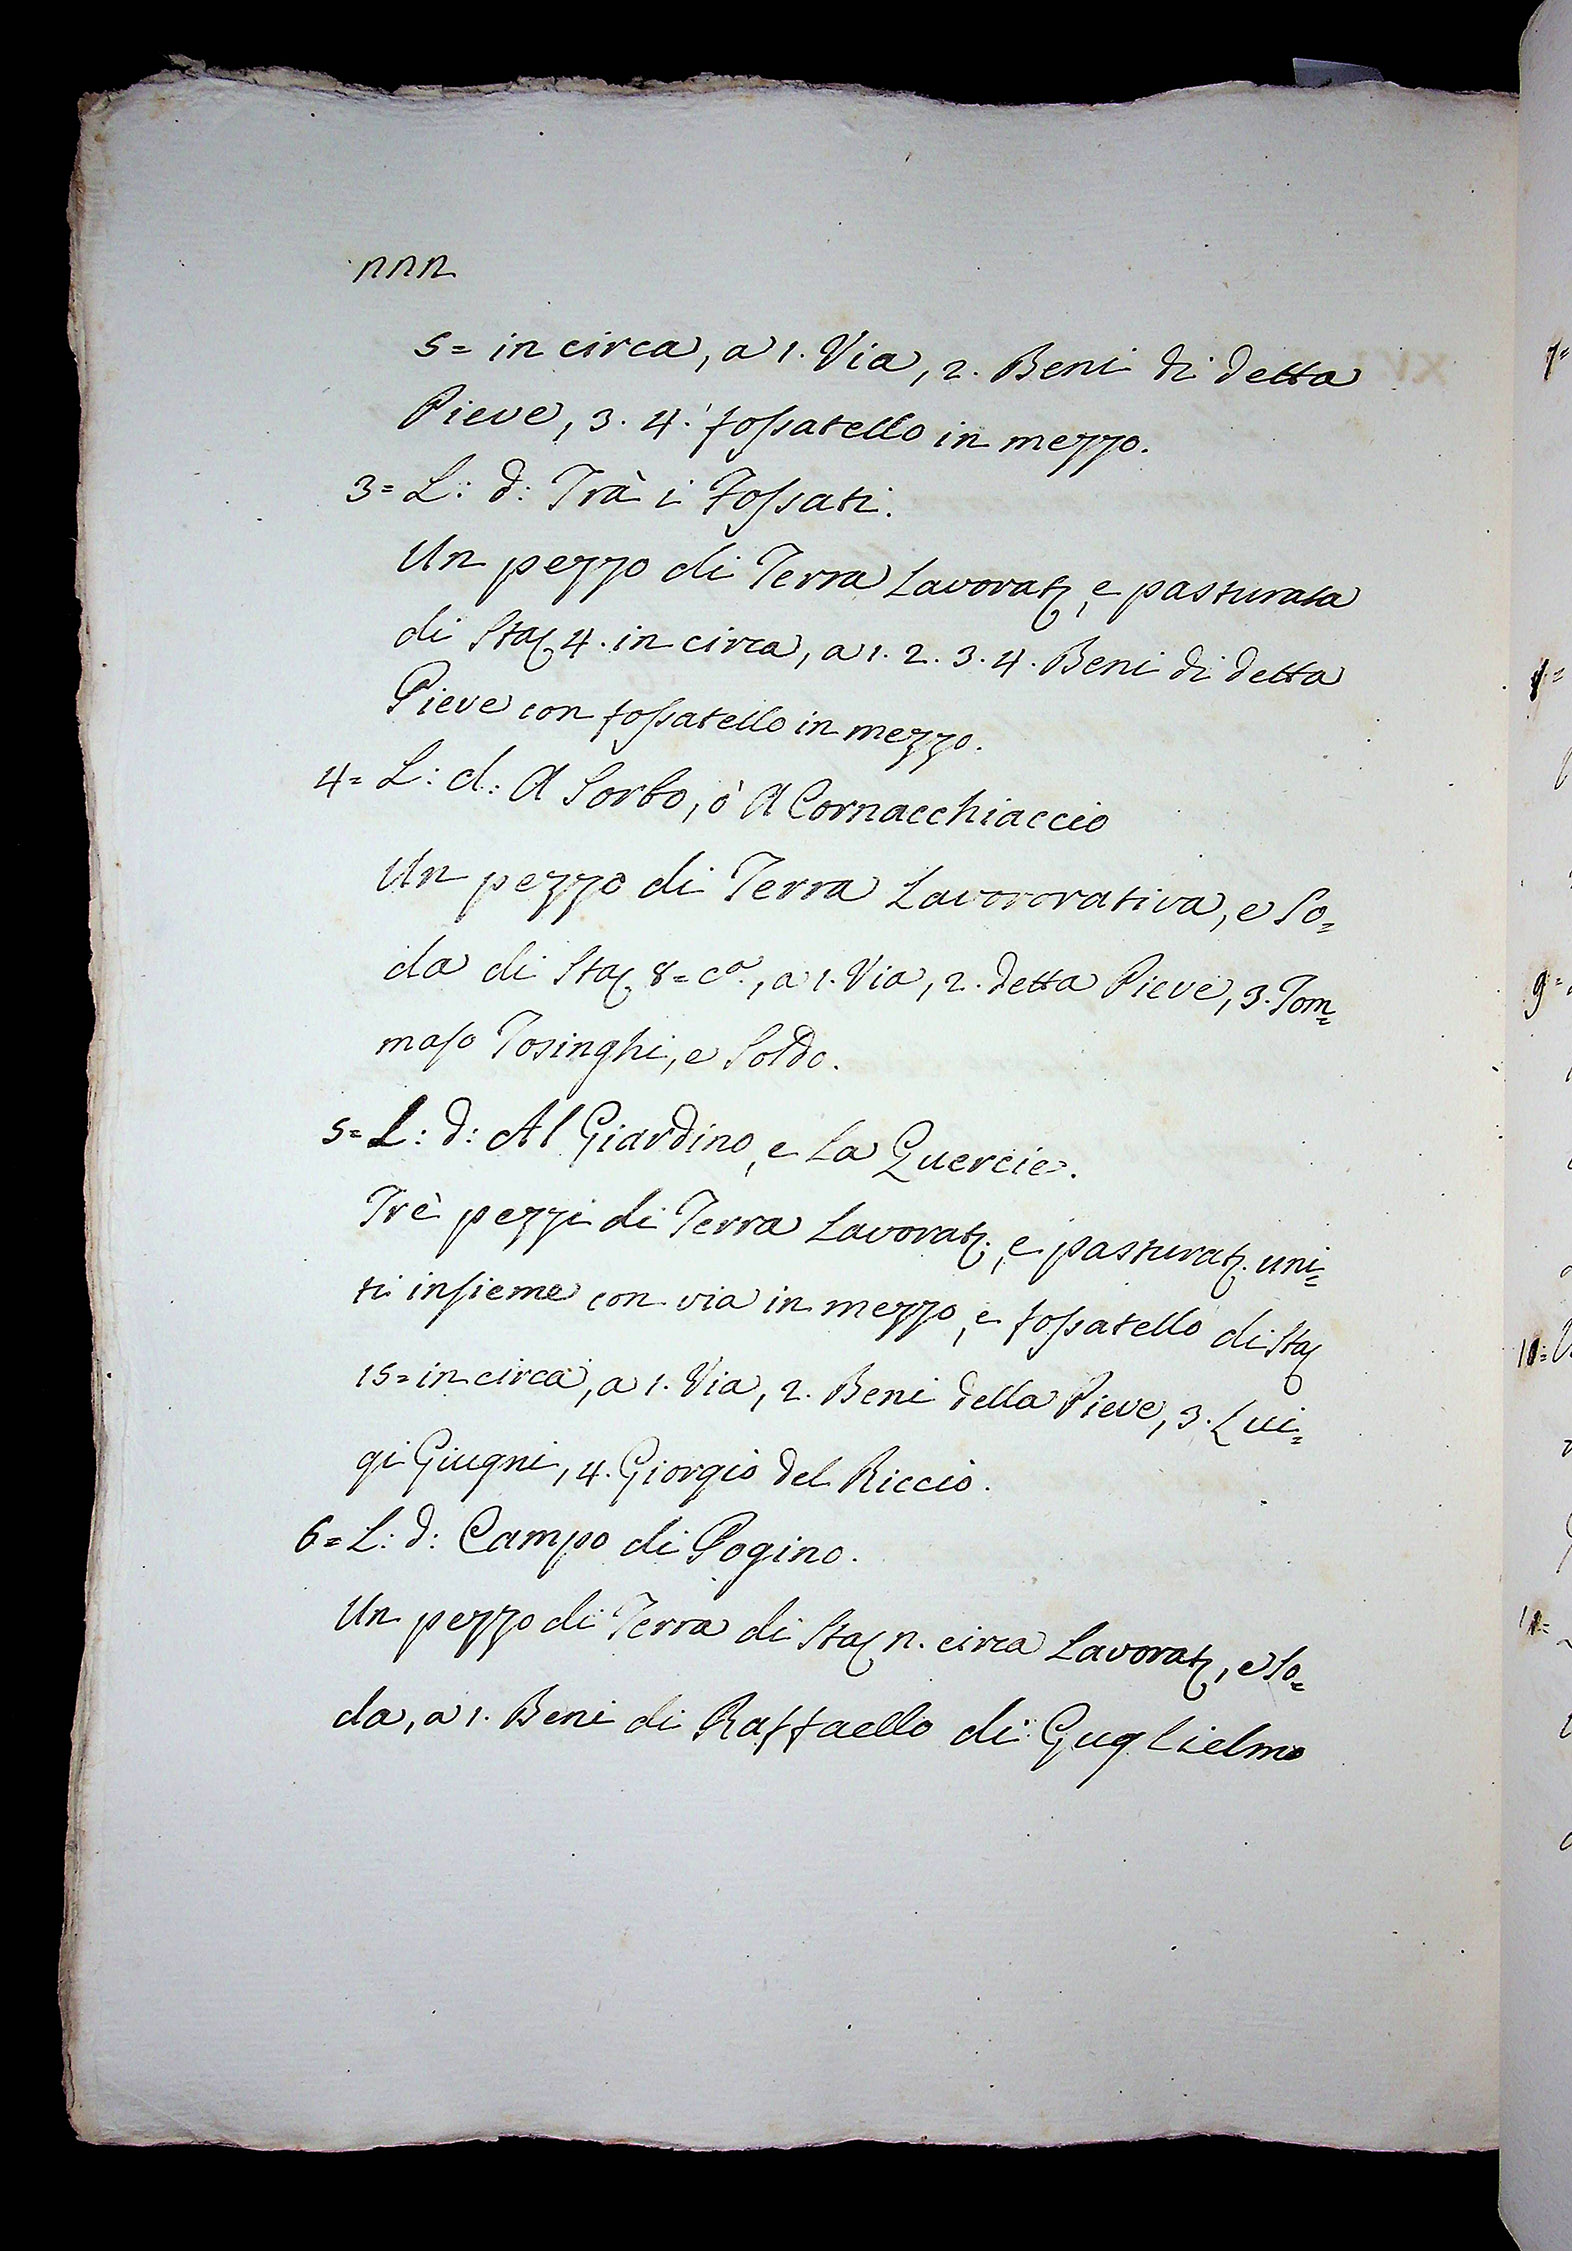 nnn
5= in circa, a 1. Via, 2. Beni di detta
Pieve, 3. 4. fossatello in mezzo.
3= L: d: Trà i Fossati.
Un pezzo di Terra Lavorat., e pasturata
di Sta. 4. in circa, a 1. 2. 3. 4. Beni di detta
Pieve con fossatello in mezzo.
4= L: d: A Sorbo, ò A Cornacchiaccio
Un pezzo di Terra Lavororativa, e So=
da di Sta. 8= ca., a 1. Via, 2. detta Pieve, 3. Tom=
maso Tosinghi, e Soldo.
5= L: d: Al Giardino, e La Quercie.
Trè pezzi di Terra Lavorat., e pasturat. uni=
ti insieme con via in mezzo, e fossatello di Sta.
15= in circa, a 1. Via, 2. Beni della Pieve, 3. Lui=
gi Giugni, 4. Giorgio del Riccio.
6= L: d: Campo di Pogino.
Un pezzo di Terra di Sta. n. circa Lavorat., e So=
da, a 1. Beni di Raffaello di Guglielmo